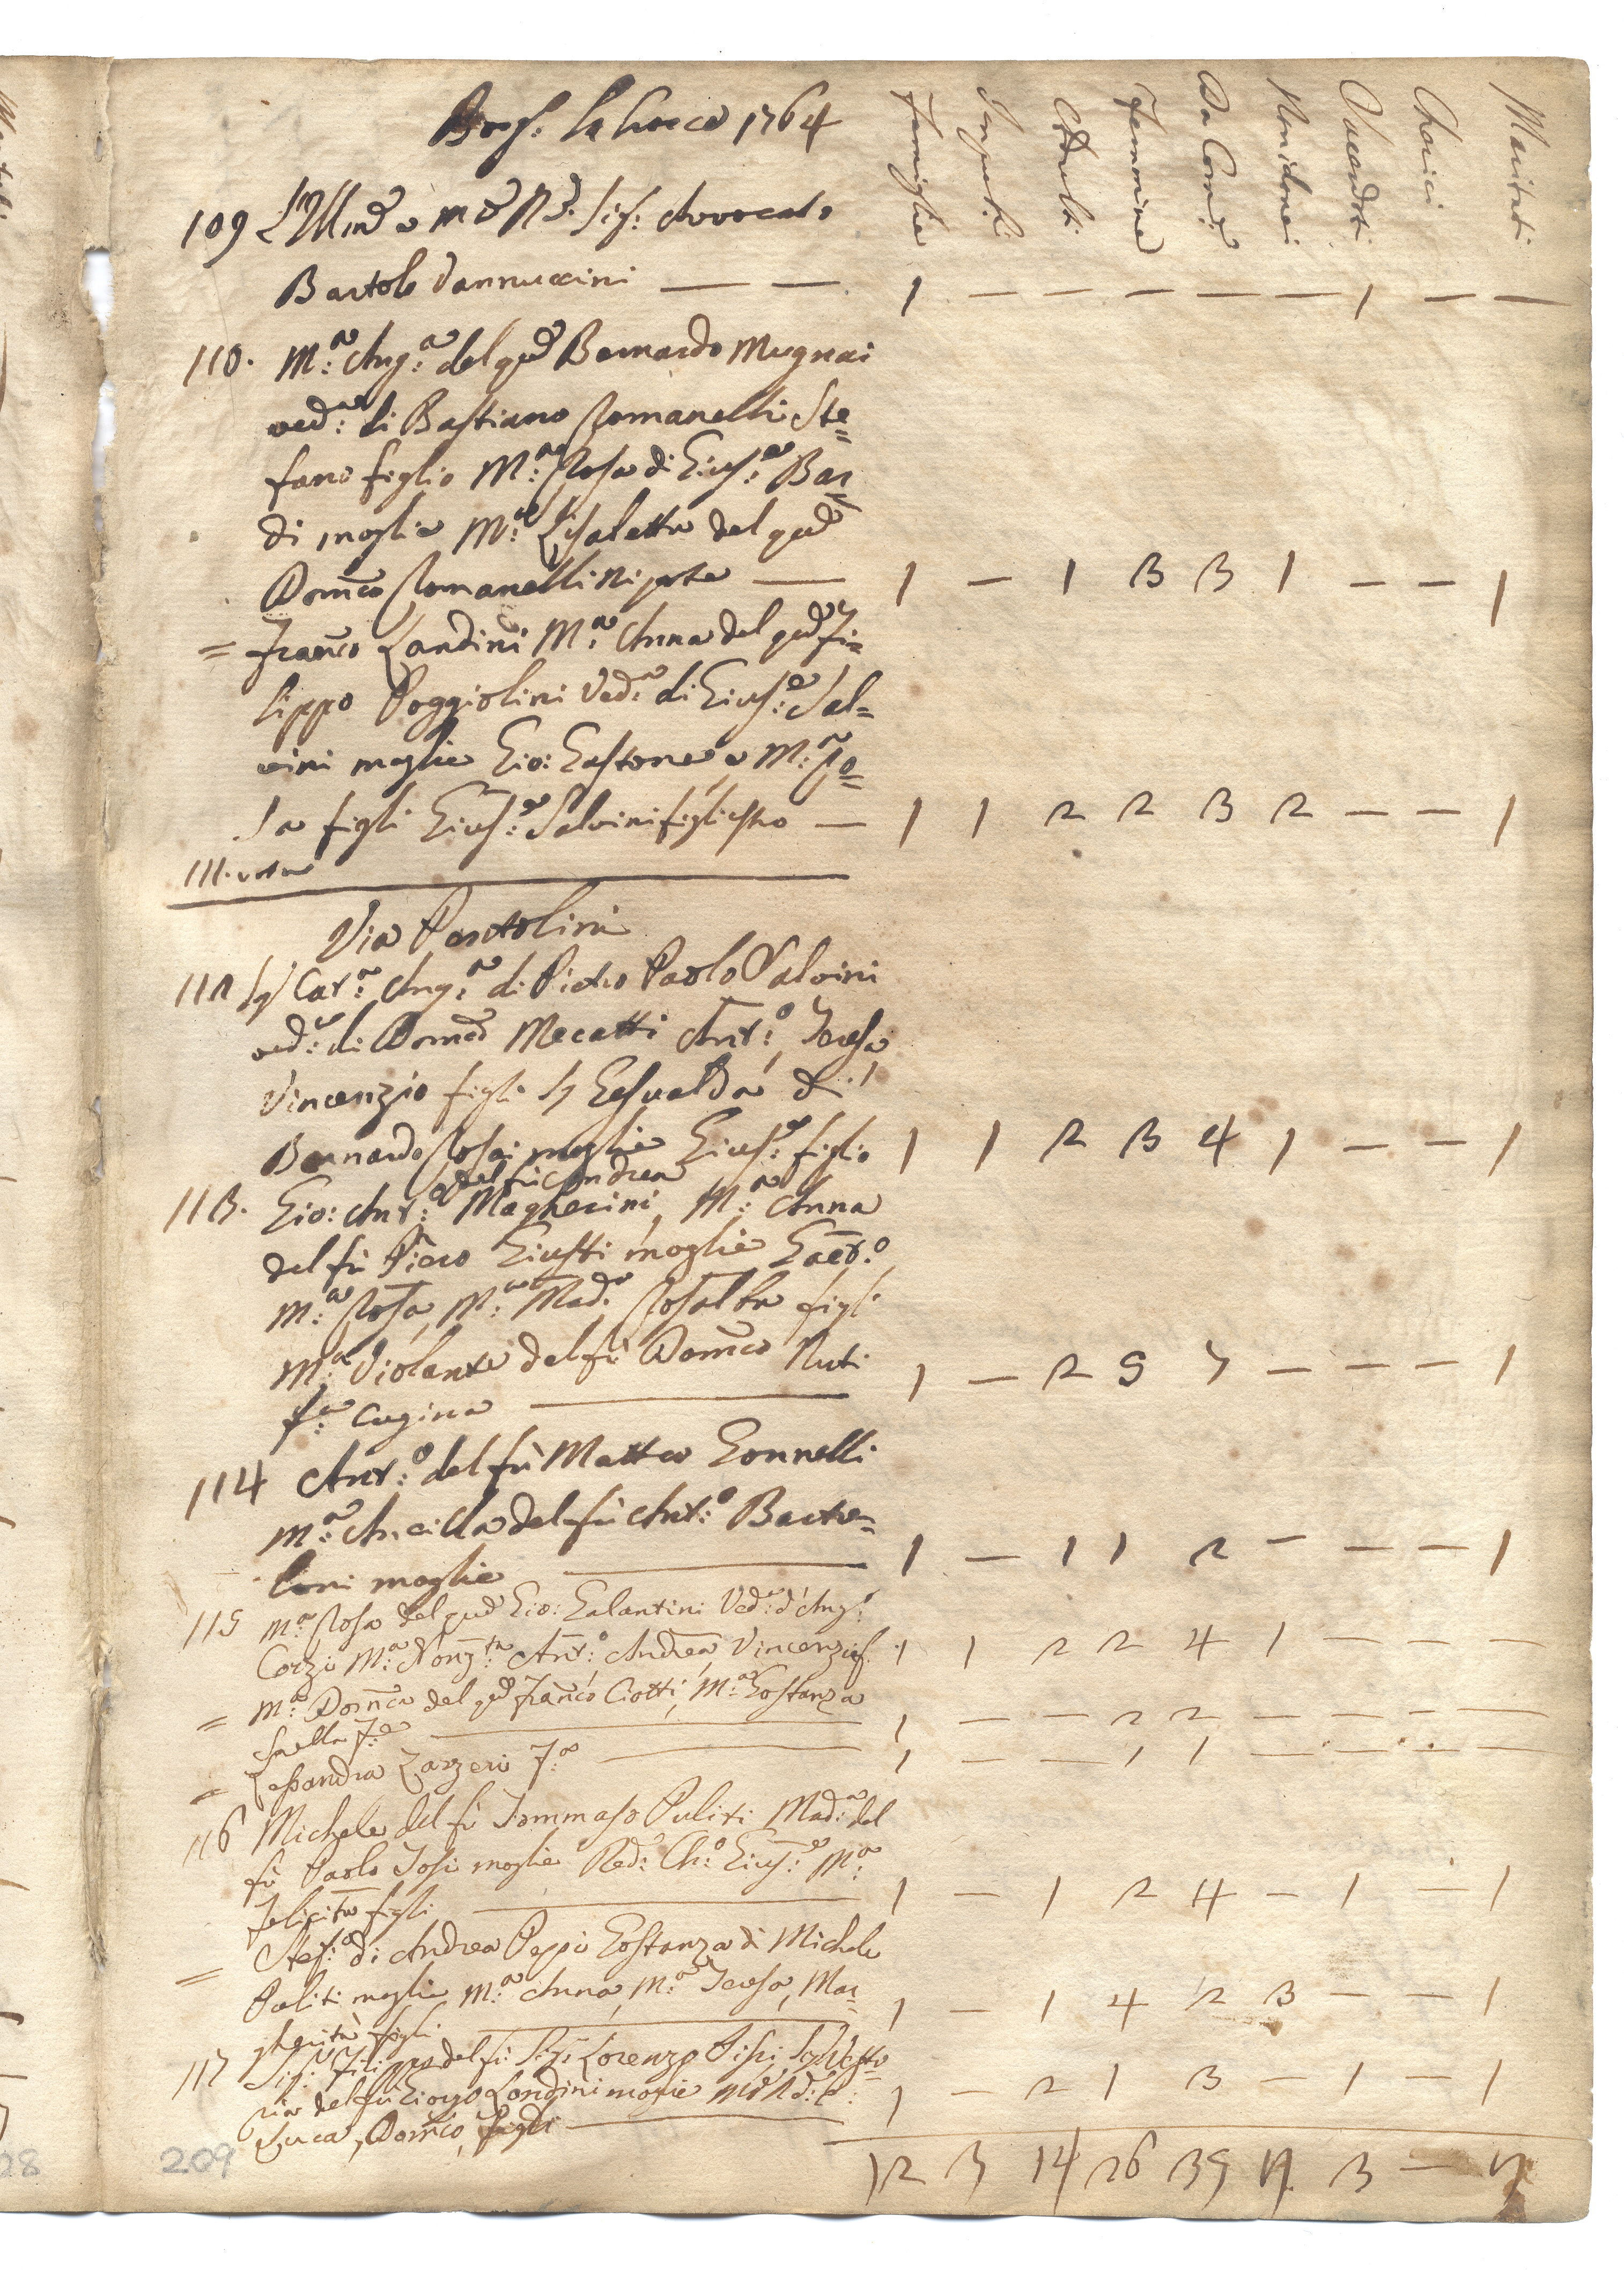 Borg: la Croce 1764
Famiglie Impub: Adulti Femmine Da Com: Non idonei Sacerdoti Cherici Maritati
109 L'Illmo e m Rdo Sig: Avvocato
Bartolo Vannuccini — — 1 — — — — — 1 — —
110. M:a Ang:a del qd Bernardo Mugnai
ved:a di Bastiano Romanelli Ste=
fano figlio M:a Rosa di Gius:e Bar=
di moglie M:a Lisabetta del qd
Domco Romanelli Nipote — 1 — 1 3 3 1 — — 1
= Franco Landini M:a Anna del qd Fi=
lippo Poggiolini Ved:a di Gius:e Sal=
vini moglie Gio: Gastone e M:a Ro=
sa figli Gius:e Salvini figliastro — 1 1 2 2 3 2 — — 1
111. vota
Via Pentolini
112 Cat:a Ang:a di Pietro Paolo Salvini
ved:a di Domco Mecatti Ant:o, Teresa
Vincenzio figli Gesualda di
Bernardo Rosai moglie Gius:e figlio 1 1 2 3 4 1 — — 1
del fu Andrea
113. Gio: Ant:o Magherini, M:a Anna
del fù Piero Giusti moglie Gaet:o
M:a Rosa, M:a Mad:a Rosalba figli
M:a Violante del fù Domco Nuti 1 — 2 5 7 — — — 1
f:a Cugina —
114 Ant:o del fù Matteo Gonnelli
M:a Ancilla del fù Ant:o Barto=
loni moglie — 1 — 1 1 2 — — — 1
115 M:a Rosa del qd Gio: Galantini Ved:a d'Ang:o
Corzi M:a Nonz:ta Ant:o Andrea Vincenzio f. 1 1 2 2 4 1 — — —
= M:a Domca del qd Franco Ciotti, M:a Costanza
Sorella F:e — 1 — — 2 2 — — — —
= Lessandra Zanzeri F:a — 1 — — 1 1 — — — —
116 Michele del fù Tommaso Puliti Mad:a del
fù Paolo Tosi moglie Red: Ch:o Gius:e M:a
Felicita figli — 1 — 1 2 4 — 1 — 1
= Stef:o di Andrea Peppi Costanza di Michele
Puliti moglie M:a Anna, M:a Teresa, Mar=
gherita figli — 1 — 1 4 2 3 — — 1
117 Sig: Filippo del fù Sig: Lorenzo Pisi,
ria del fù Giorgio Landini moglie 1 — 2 1 3 — 1 — 1
Luca, Domco, figli —
12 3 14 26 35 3 —
209